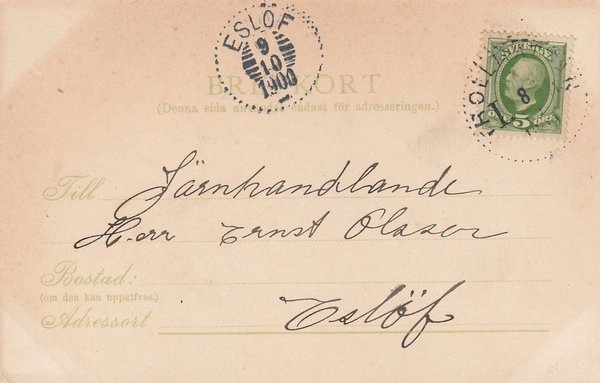 ESLÖF
9
10
1900
SVERIGE
5
8
BREFKORT
(Denna sida användes endast för adresseringen.)
Till Järnhandlande
Herr Ernst Olsson
Bostad:
(om den kan uppgifvas.)
Adressort Eslöf